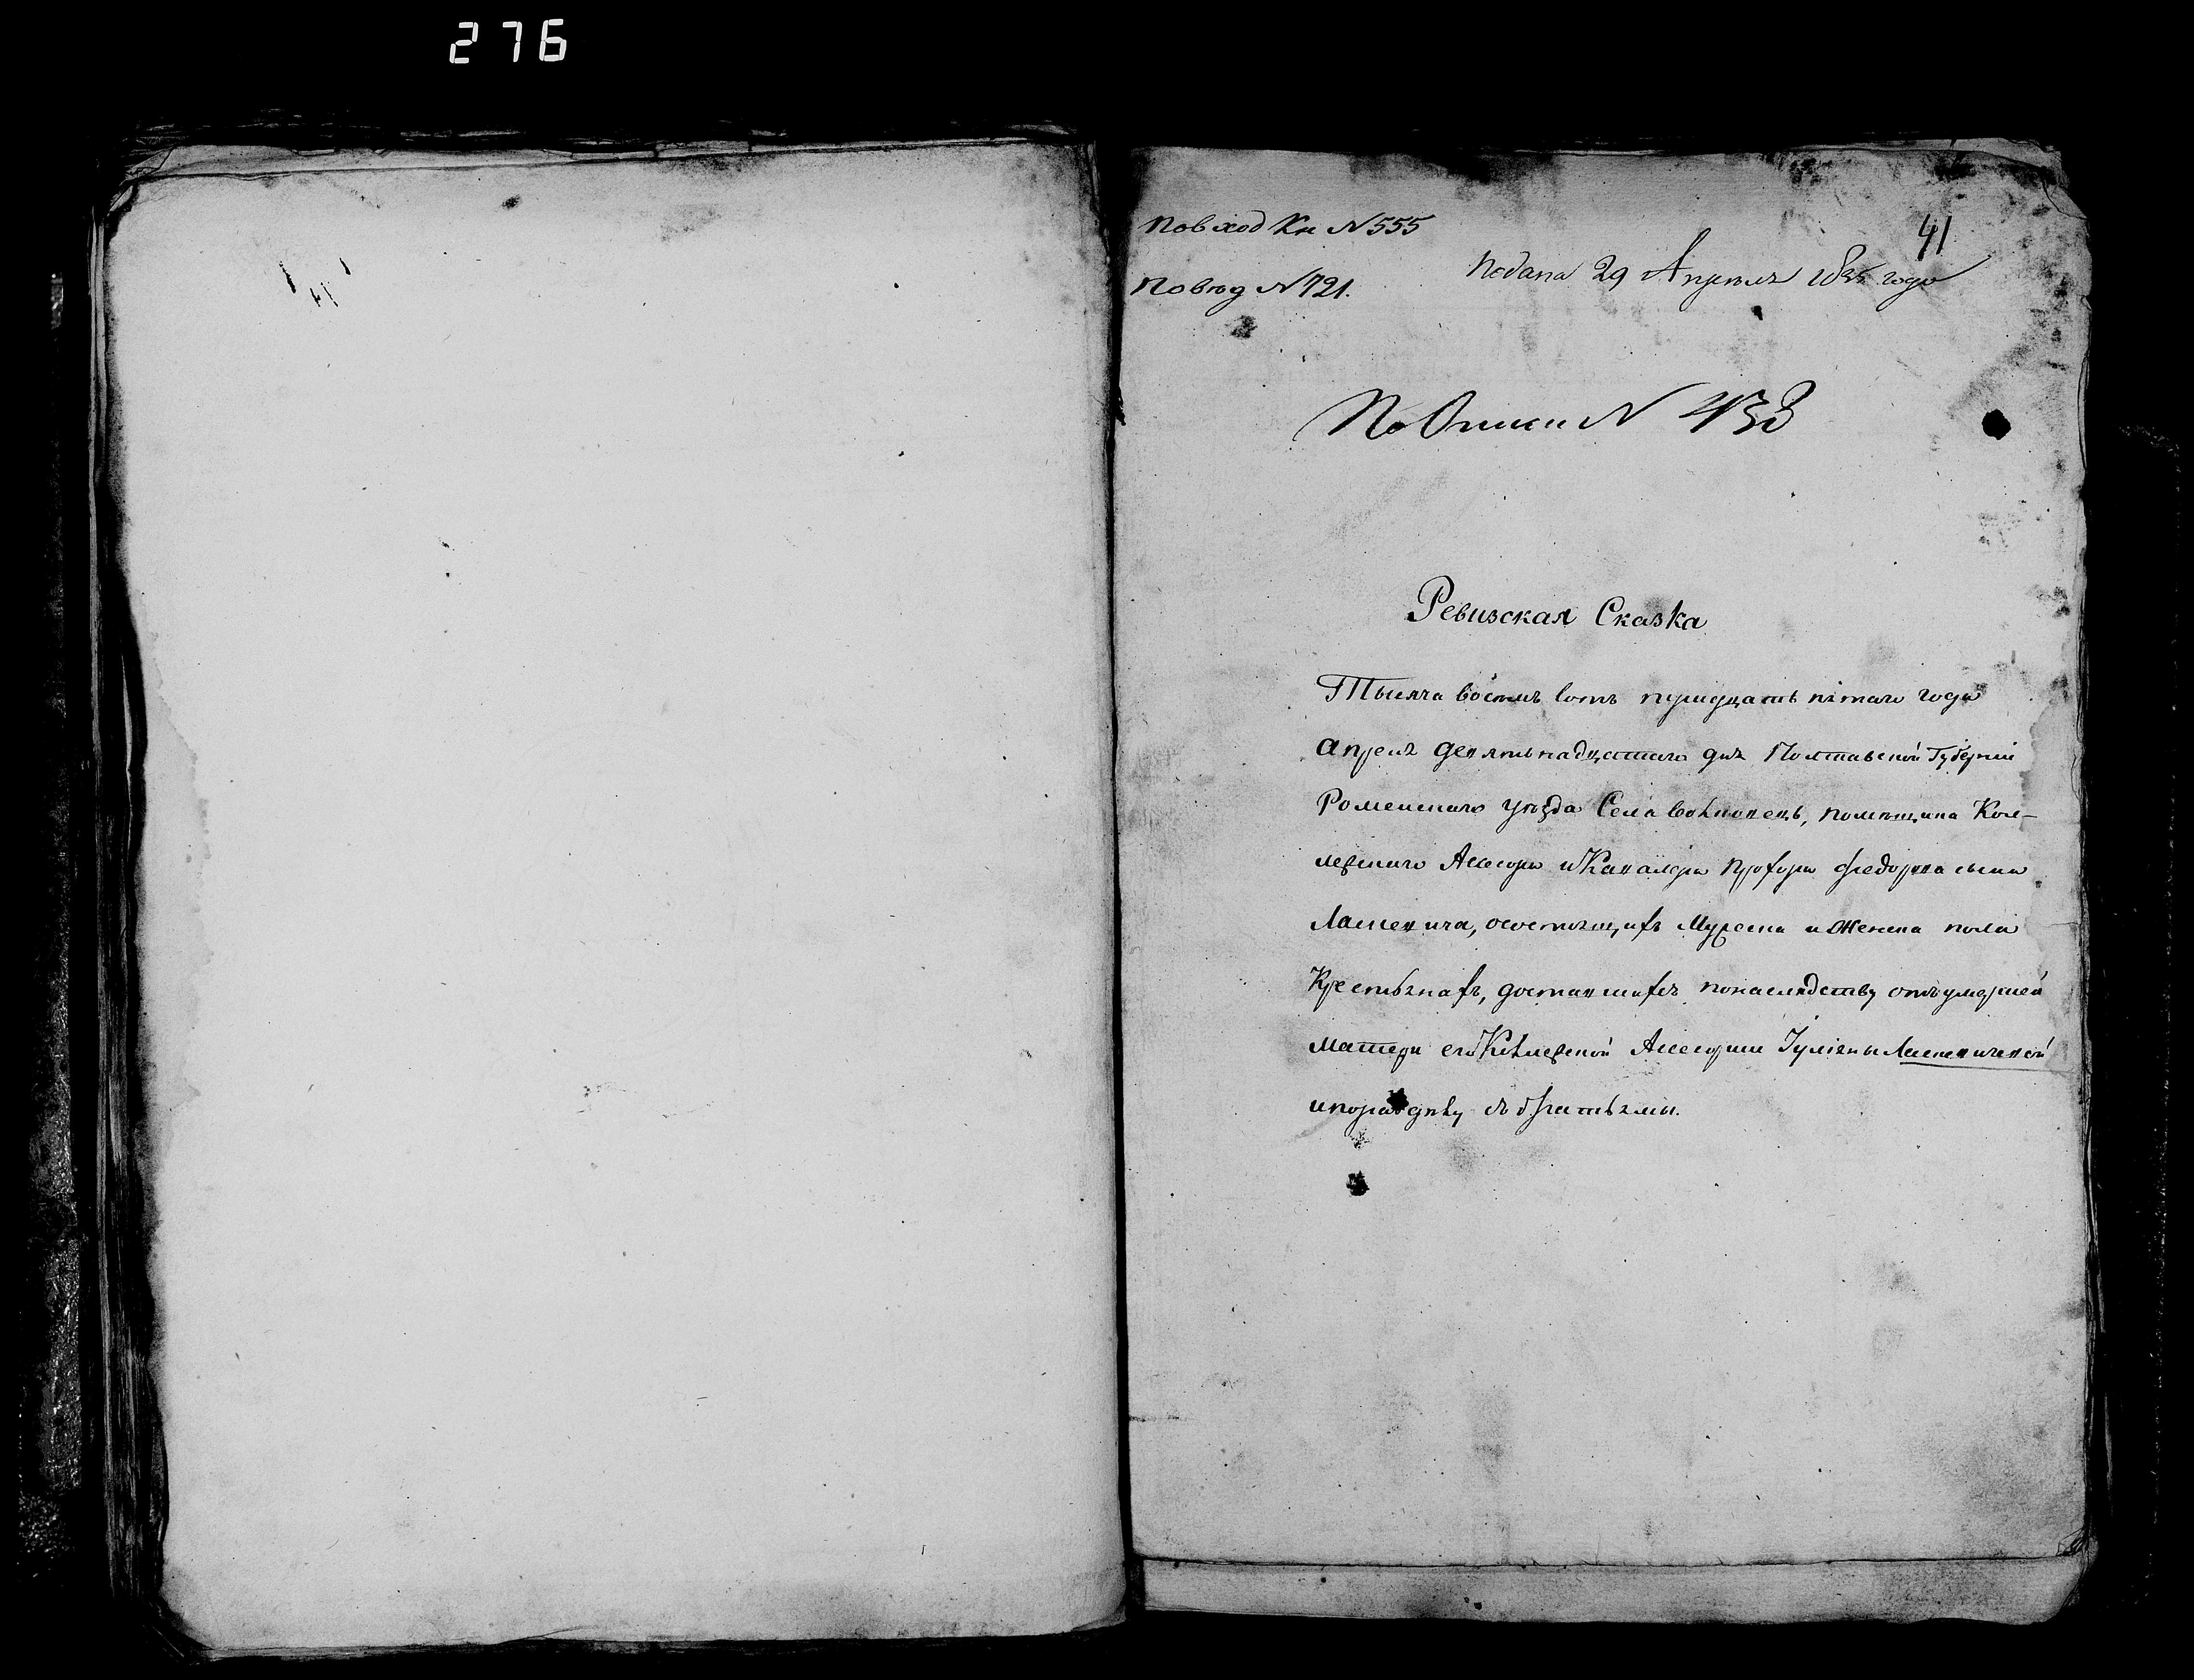 276
41
По вход Кн N 555
Подана 29 Апреля 1835 года
По вѣд N 721.
По Описи N 438
Ревизская Сказка
Тысяча восемь сотъ тридцать пятаго года
апреля девятьнадцатаго дня Полтавской Губерніи
Роменскаго уѣзда Села помѣщика Кол-
лежскаго Асесора и Кавалера Федорова сына
Лаш­кевича, о состоящихъ Мужеска и Женска пола
Крестьянахъ, доставшихся понаследству отъ умершей
матери его Коллежской Асесорши Іуліяны Лашкевичевой
и по раздѣлу съ братьями.